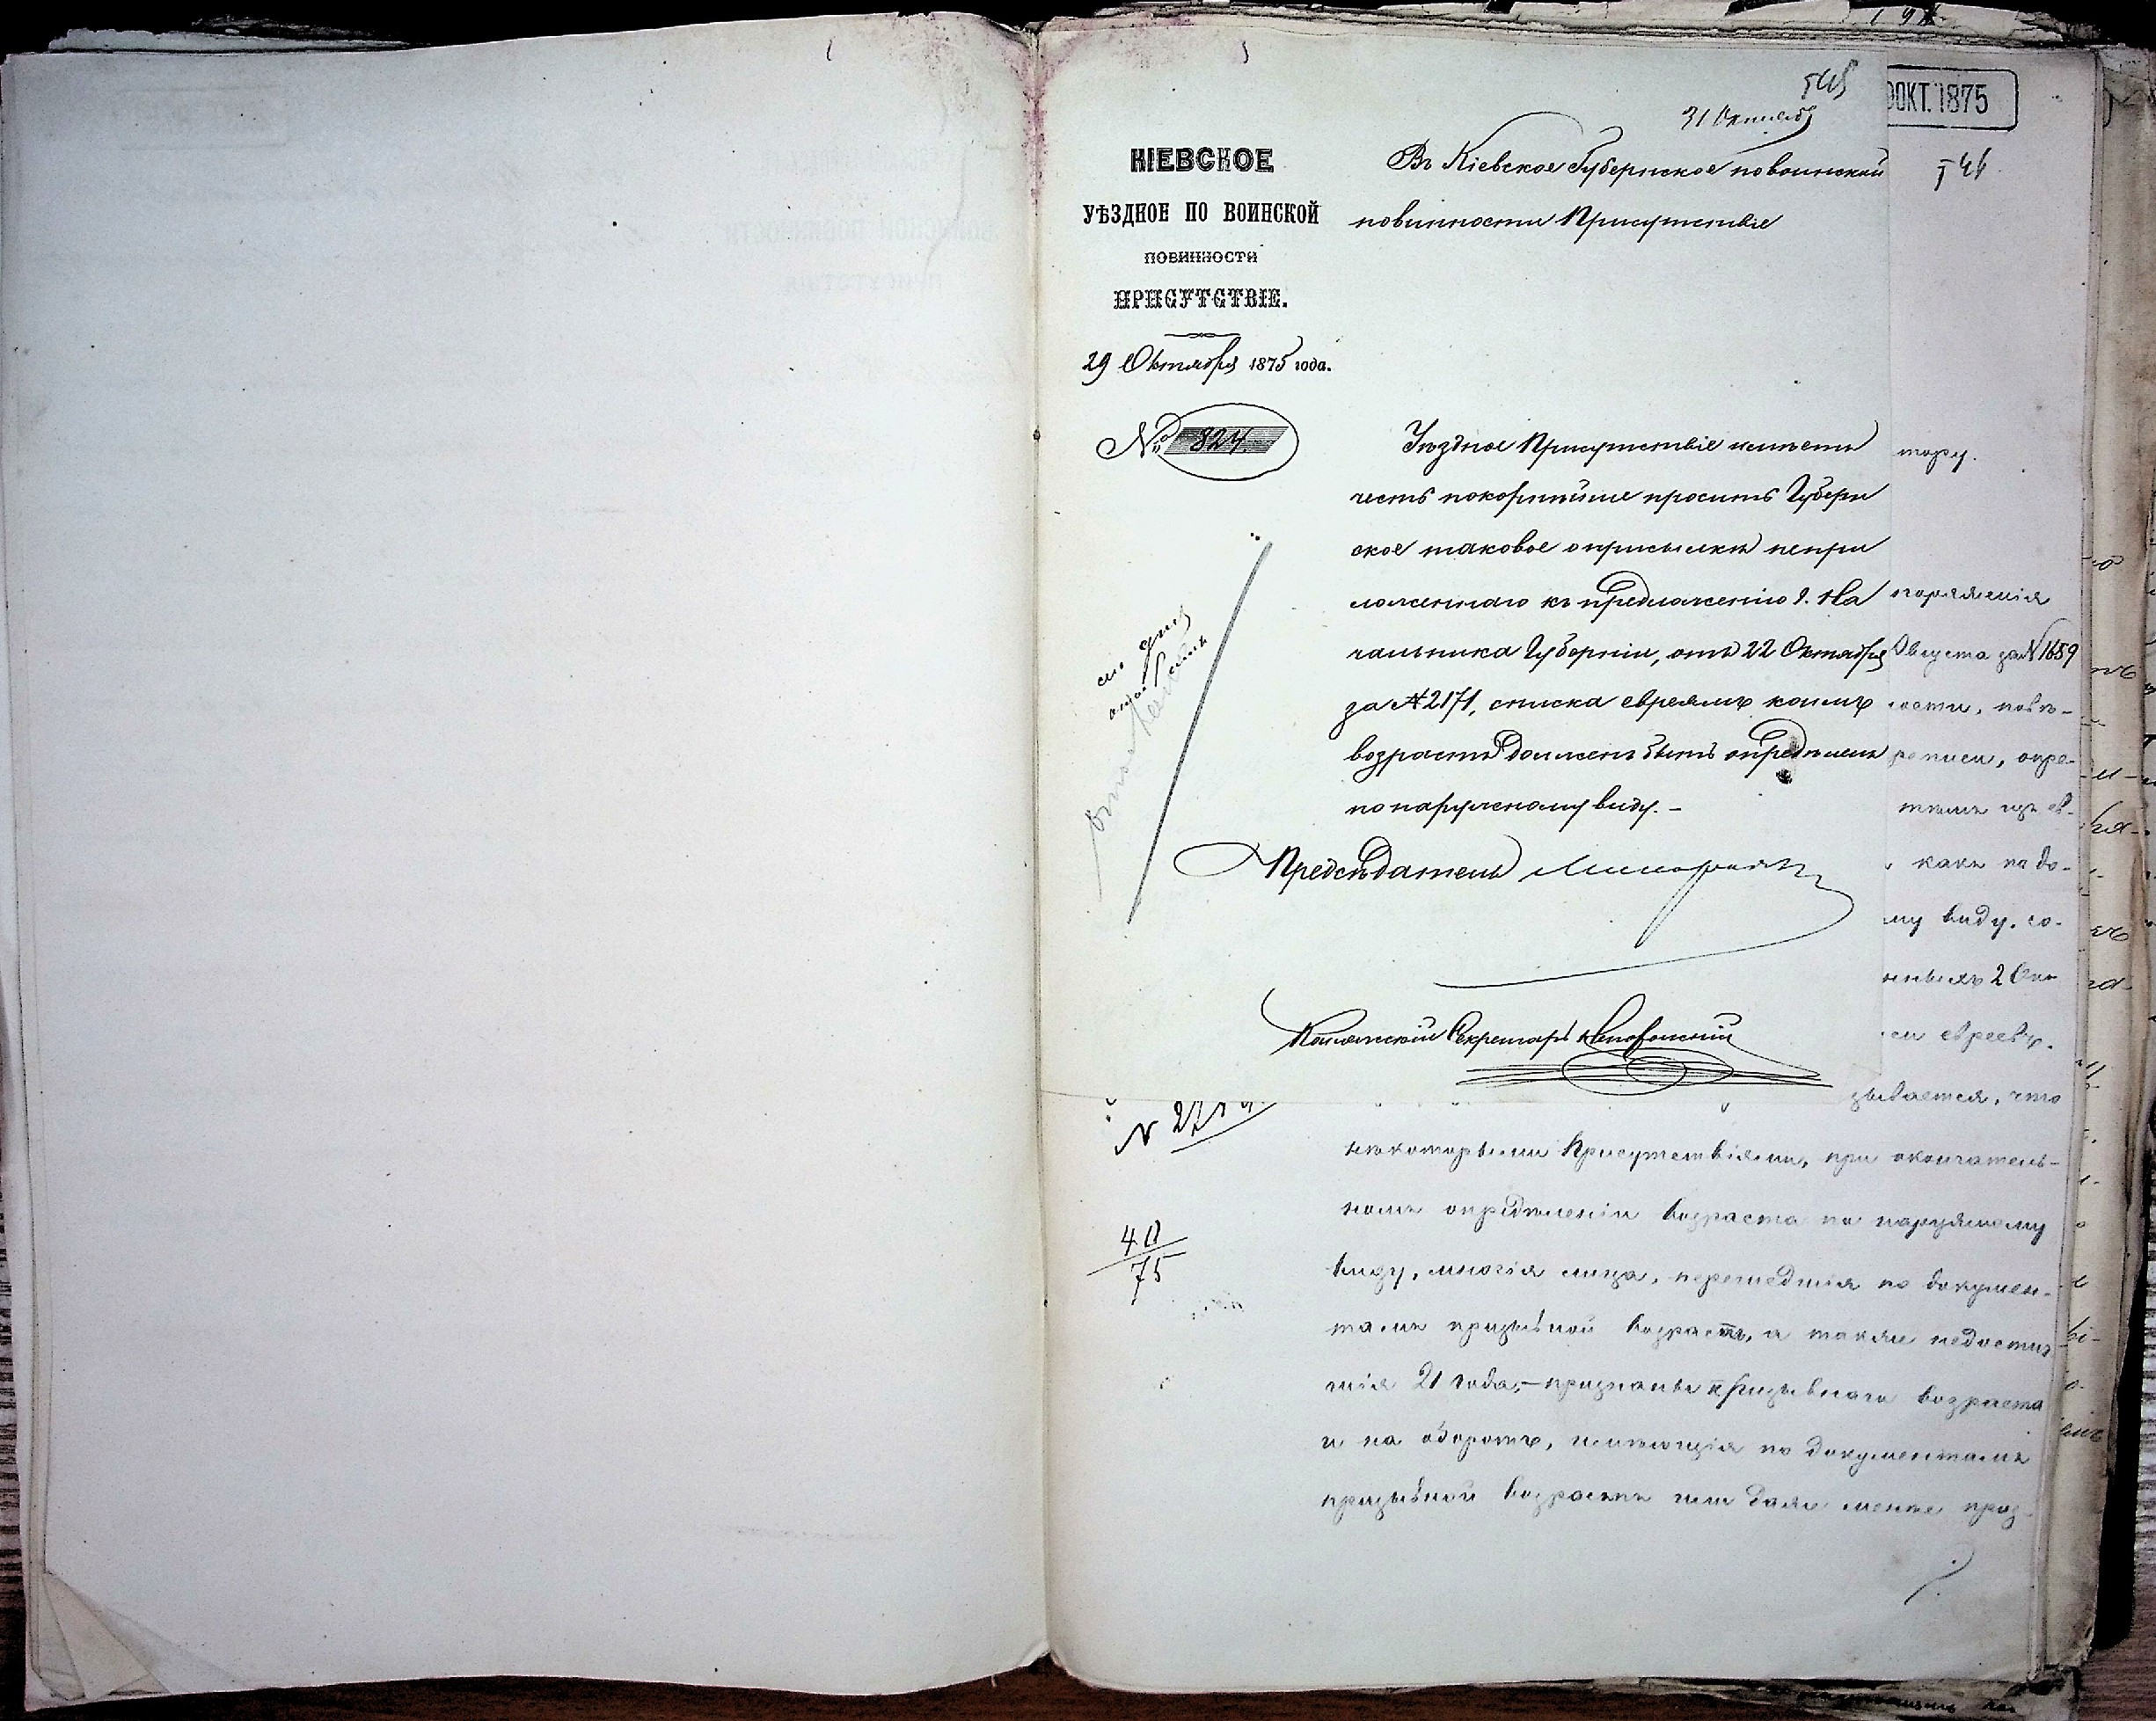 545
31 Октяб
КІЕВСКОЕ
УѢЗДНОЕ ПО ВОИНСКОЙ
ПОВИННОСТИ
ПРИСУТСТВІЕ.
29 Октября 1875 года.
№ 824.
Въ Кіевское Губернское по воинской
повинности Присутствіе
Уѣздное Присутствіе имѣетъ
честь покорнѣйше просить Губерн
ское таковое о присылкѣ непри
ложеннаго къ предложенію г. На
чальника Губерніи, отъ 22 Октября
за № 2171, списка евреямъ коимъ
возрастъ долженъ быть опредѣленъ
по наружному виду. -
Предсѣдатель
Коллежскій Секретарь
ОКТ. 1875
546
тору.
Августа за № 1659
ости, повѣ-
росписи, опре-
какъ на до-
му виду, со-
нныхъ 2
си евреевъ.
зывается, что
N 22
40
75
нѣкоторыми Присутствіями, при окончатель-
номъ опредѣленіи возраста по наружному
виду, многія лица, перешедшія по докумен-
тамъ призывной возрастъ, а также недостиг
шія 21 года, - признаны призывнаго возраста
и на оборотъ, имѣющія по документамъ
призывной возрастъ или даже менѣе приз-